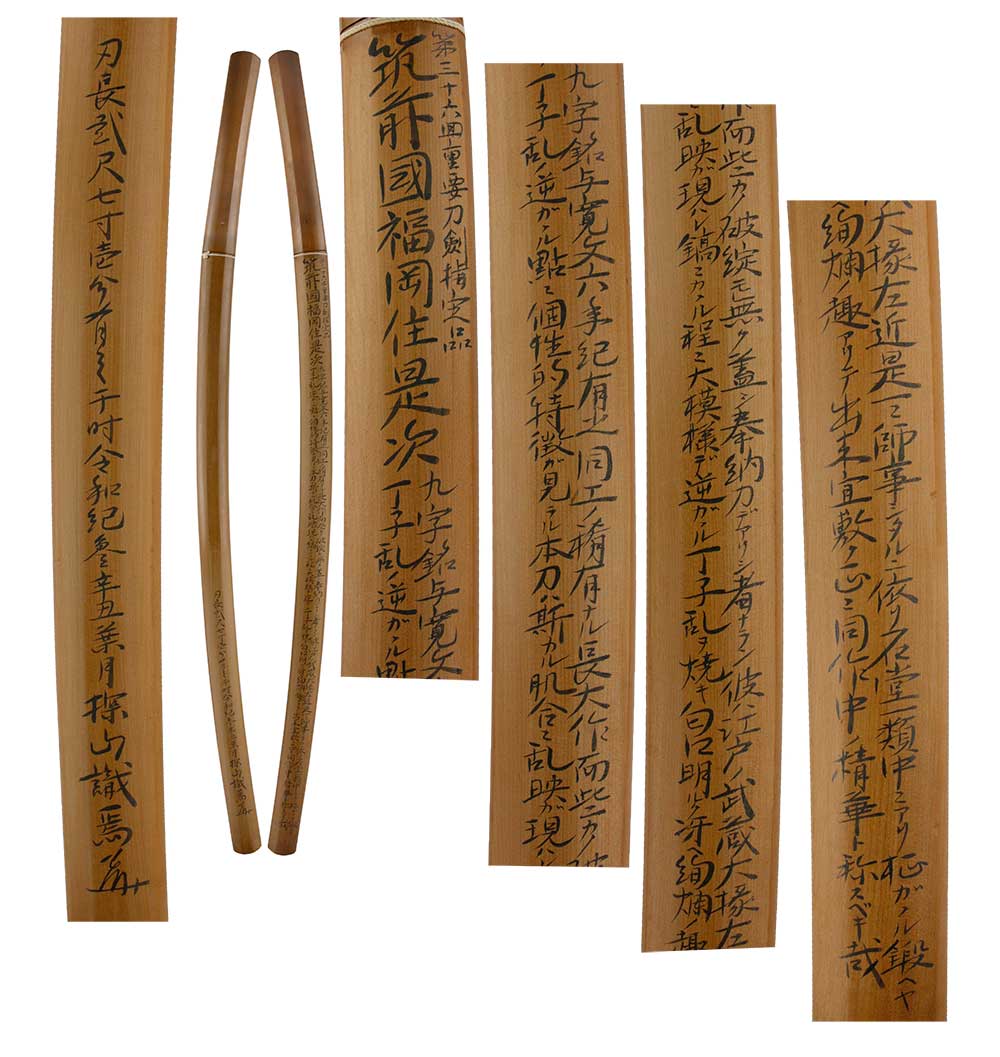 第三十六回重要刀剣指定品
筑前國福岡住是次
九字銘与寛文
丁子乱ノ逆ガヽル點
九字銘与寛文六年紀有之同工ノ稀有ナル長大作而些カノ破
丁子乱ノ逆ガヽル點ニ個性的特徴が見ラル本刀ハ斯カル肌合ニ乱映が現ハレ
作而些カノ破綻モ無ク蓋シ奉納刀デアリシ者ナラン彼ハ江戸ノ武蔵大掾左
乱映が現ハレ鎬ニカヽル程ニ大模様デ逆ガヽル丁子乱ヲ焼キ匂口明ルク冴ヘ絢爛ノ趣
大掾左近是一ニ師事シタルニ依リ石堂一類中ニアリ柾ガヽル鍛ヘヤ
絢爛ノ趣アリテ出来宜敷ク正ニ同作中ノ精華ト称スベキ哉
刃長貮尺七寸壱分有之于時令和紀参辛丑葉月探山識焉